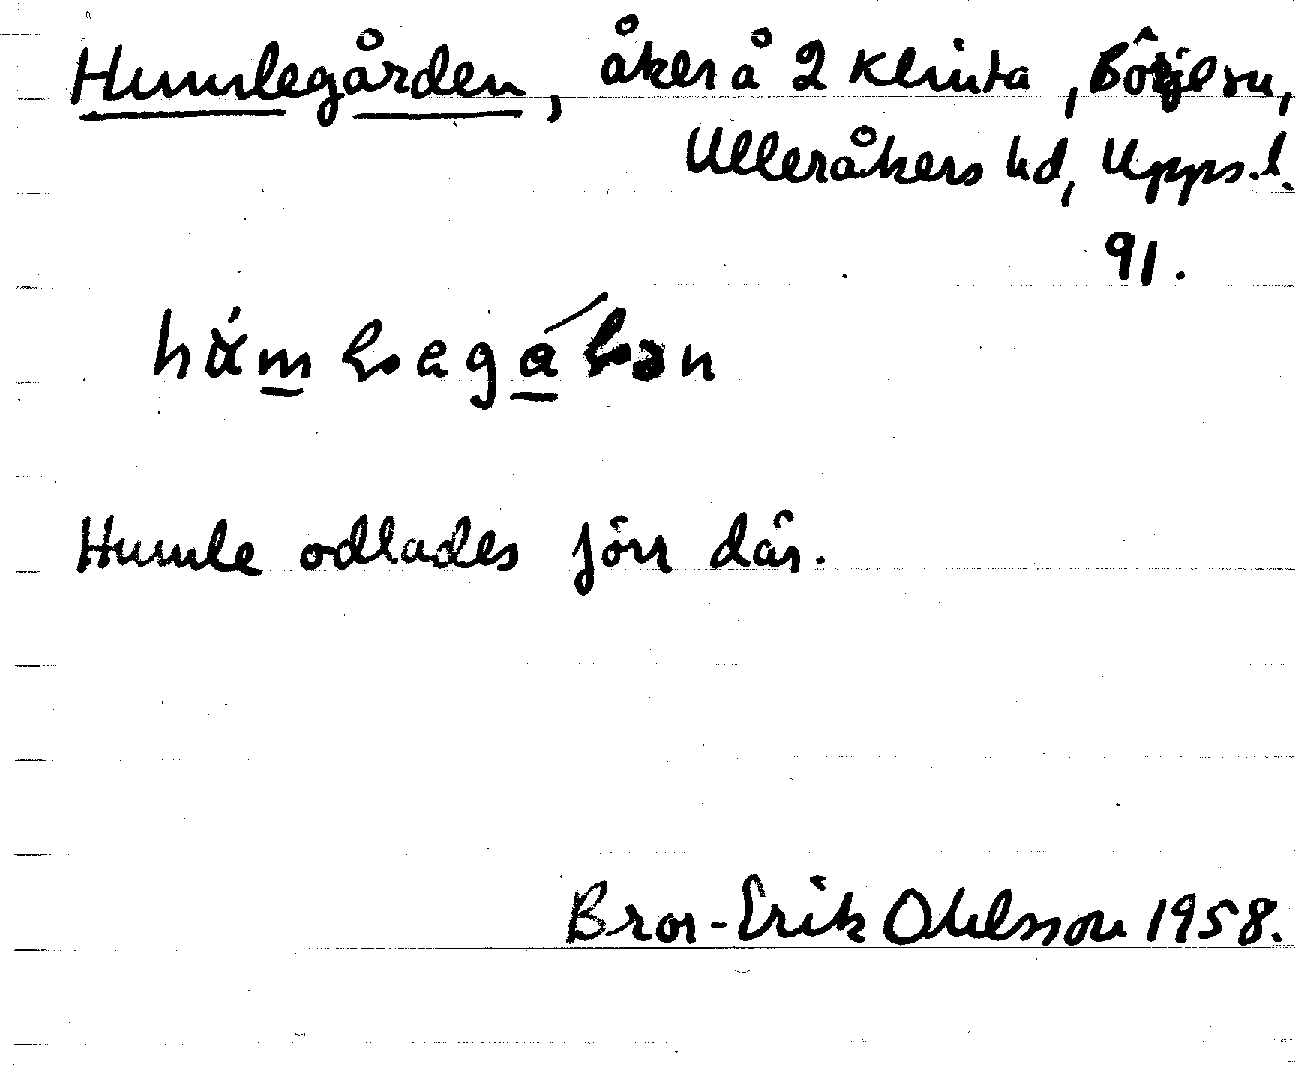 Humlegården, åker å 2 Klinta, Börje sn,
Ulleråkers hd, Upps.l.
91.
Humle odlades förr där.
Bror-Erik Ohlsson 1958.